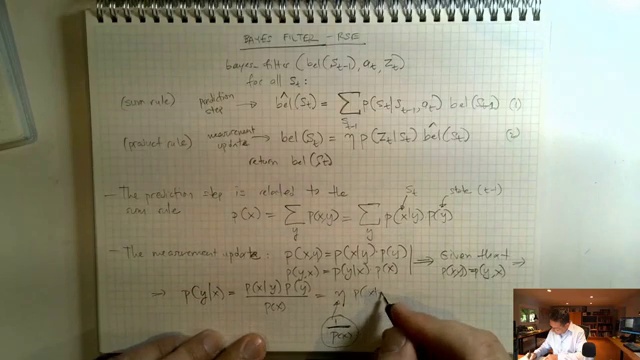 BAYES FILTER - RSE
bayes-filter (bel(St-1), at, Zt)
for all St:
(sum rule) prediction step → b̂el(St) = ∑St-1 p(St|St-1, at) bel(St-1) (1)
(product rule) measurement update → bel(St) = η p(Zt|St) b̂el(St) (2)
return bel(St)
- The prediction step is related to the sum rule
St state (t-1)
p(x) = ∑y p(x,y) = ∑y p(x|y) p(y)
- The measurement update: p(x,y) = p(x|y) · p(y)
p(y,x) = p(y|x) p(x)
⟹ Given that p(x,y) = p(y,x) ⟹
⟹ p(y|x) = p(x|y) p(y) / p(x) = η p(x|
1 / p(x)